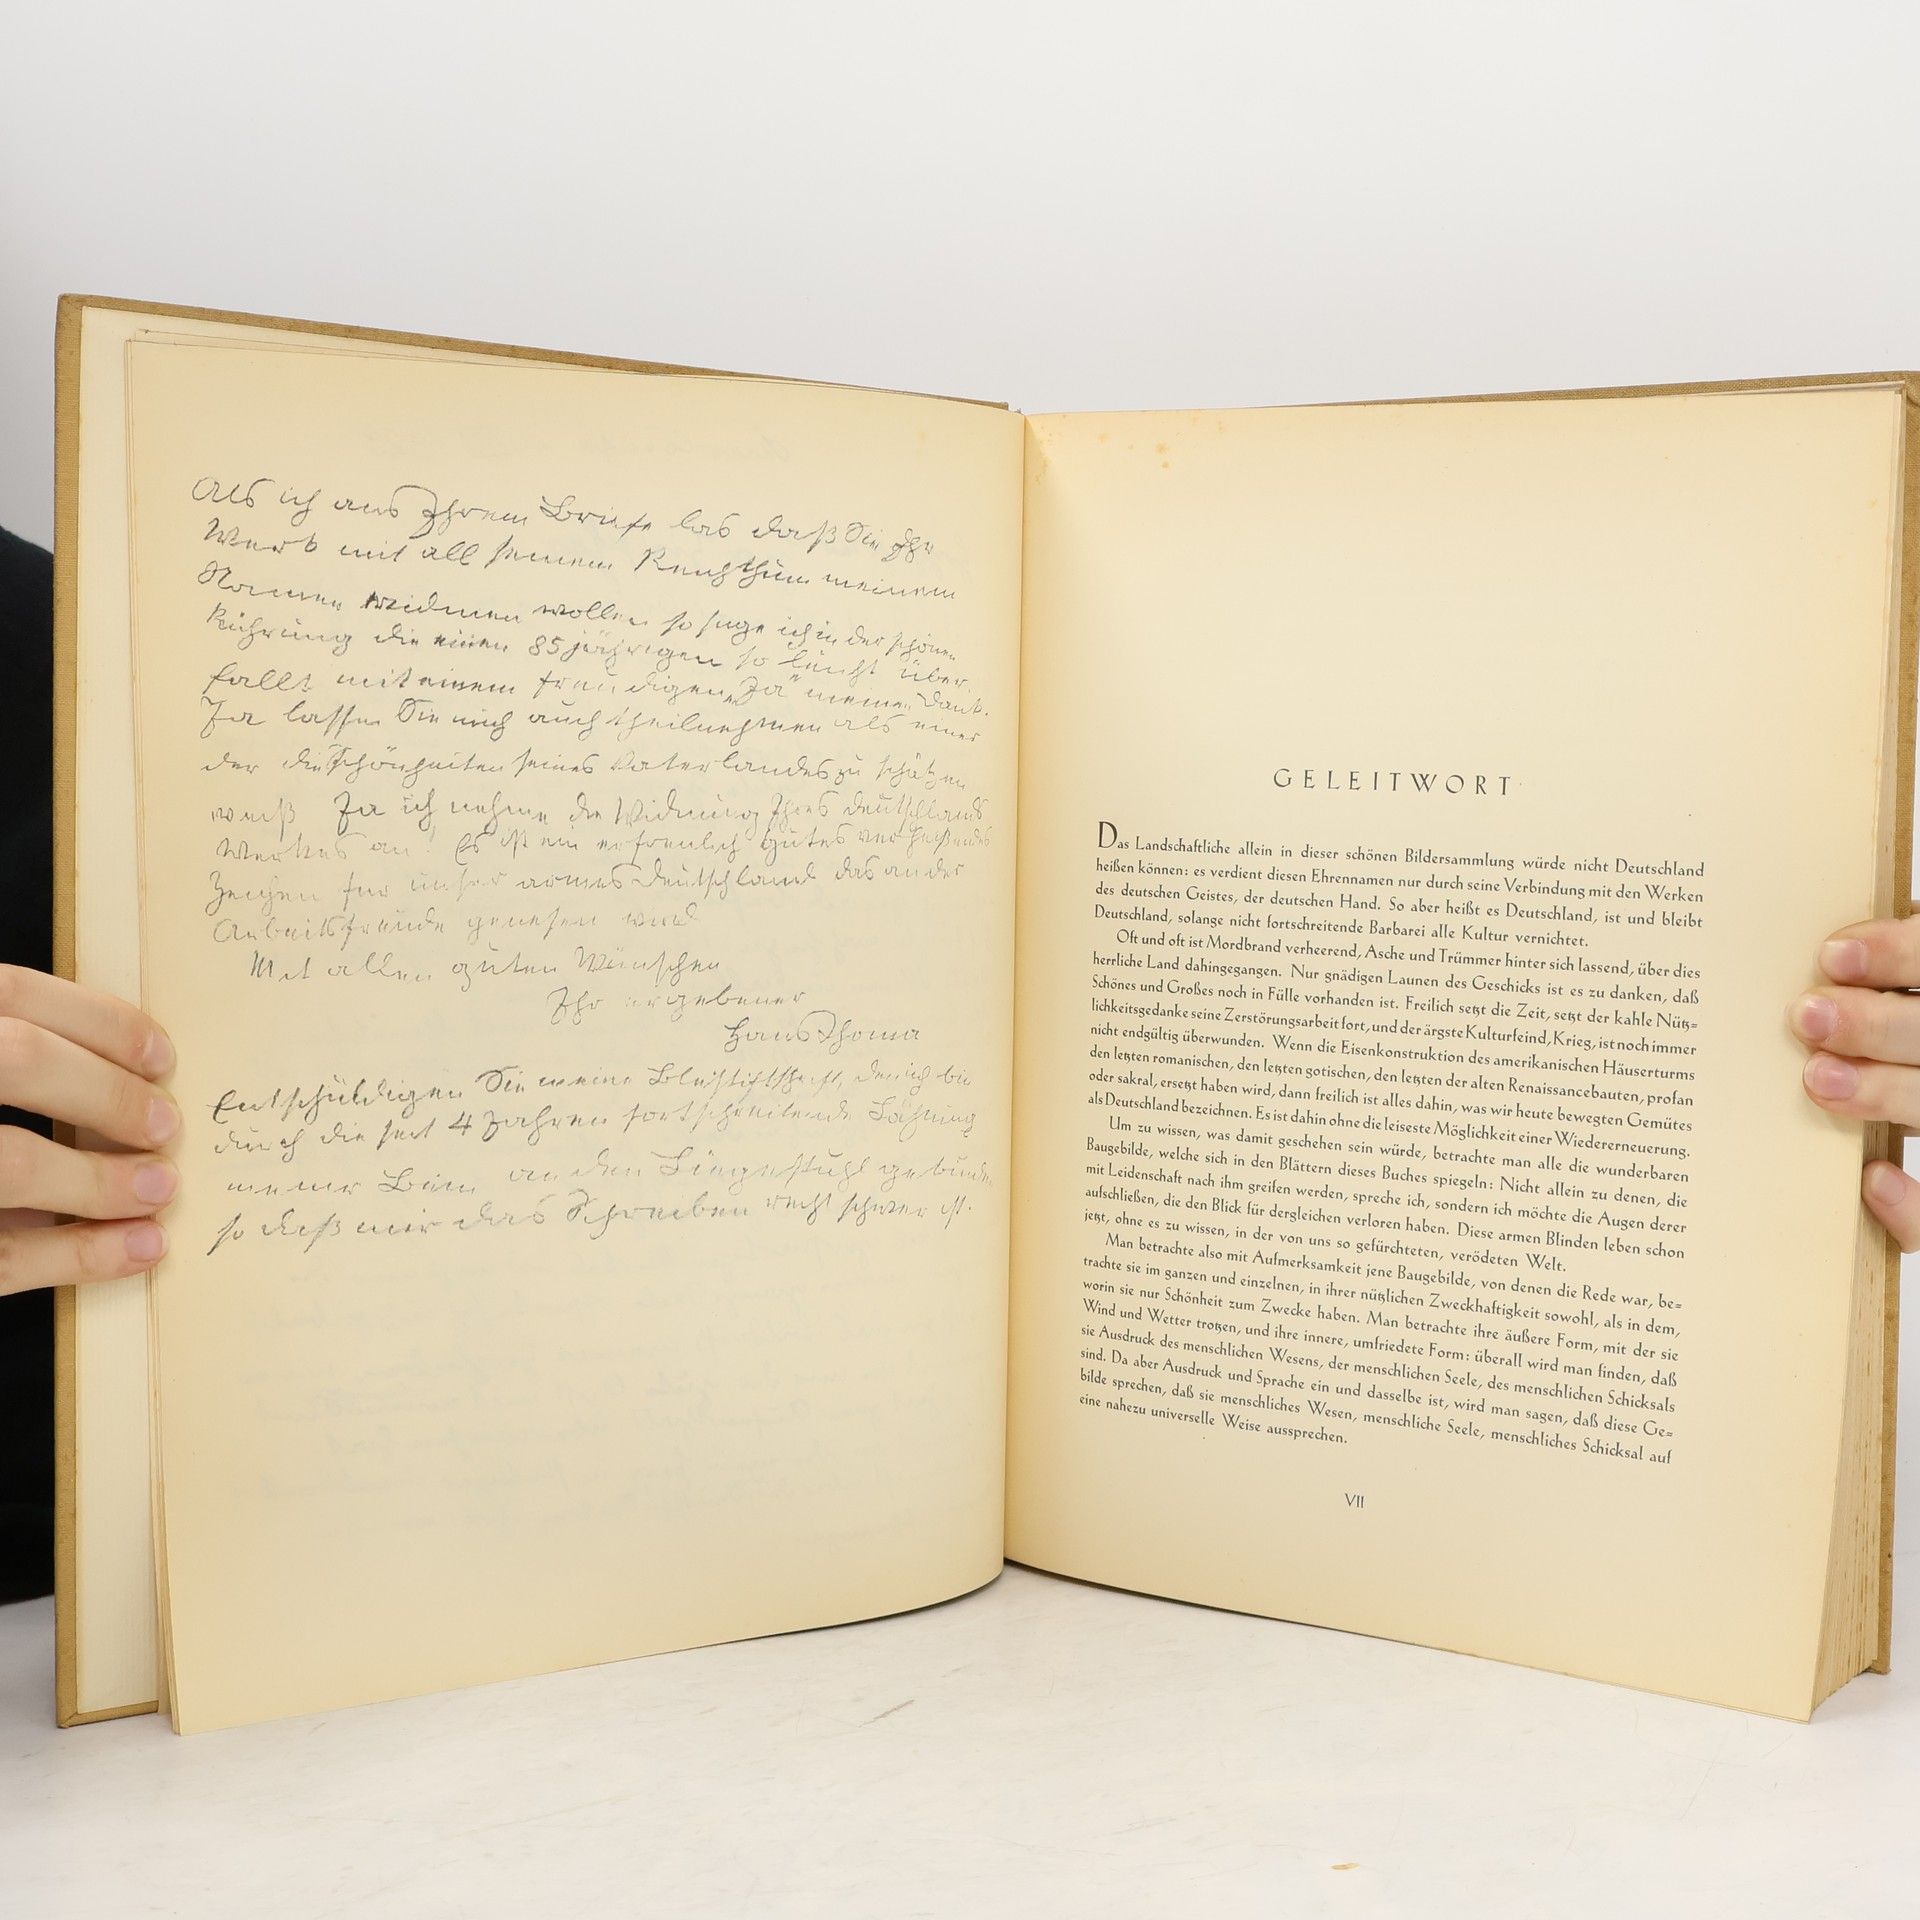 Als ich aus Ihrem Briefe las daß Sie Ihr
Werk mit all seinem Reichthum meinem
Namen widmen wollen so sage ich in der schönen
Rührung die einen 85 jährigen so leicht über
fällt mit einem freudigen „Ja" meinen Dank.
Ja lassen Sie mich auch theilnehmen als einer
der die Schönheiten seines Vaterlandes zu schätzen
weiß Ja ich nehme die Widmung Ihres Deutschlands
Werkes an! Es ist ein erfreulich gutes verheißendes
Zeichen für unser armes Deutschland das an der
Arbeitsfreude genesen wird
Mit allen guten Wünschen
Ihr ergebener
Hans Thoma
Entschuldigen Sie meine Bleistiftschrift, denn ich bin
durch die seit 4 Jahren fortschreitende Lähmung
meiner Beine an den Liegestuhl gebunden
so daß mir das Schreiben recht schwer ist.
GELEITWORT
Das Landschaftliche allein in dieser schönen Bildersammlung würde nicht Deutschland
heißen können: es verdient diesen Ehrennamen nur durch seine Verbindung mit den Werken
des deutschen Geistes, der deutschen Hand. So aber heißt es Deutschland, ist und bleibt
Deutschland, solange nicht fortschreitende Barbarei alle Kultur vernichtet.
Oft und oft ist Mordbrand verheerend, Asche und Trümmer hinter sich lassend, über dies
herrliche Land dahingegangen. Nur gnädigen Launen des Geschicks ist es zu danken, daß
Schönes und Großes noch in Fülle vorhanden ist. Freilich setzt die Zeit, setzt der kahle Nütz=
lichkeitsgedanke seine Zerstörungsarbeit fort, und der ärgste Kulturfeind, Krieg, ist noch immer
nicht endgültig überwunden. Wenn die Eisenkonstruktion des amerikanischen Häuserturms
den letzten romanischen, den letzten gotischen, den letzten der alten Renaissancebauten, profan
oder sakral, ersetzt haben wird, dann freilich ist alles dahin, was wir heute bewegten Gemütes
als Deutschland bezeichnen. Es ist dahin ohne die leiseste Möglichkeit einer Wiedererneuerung.
Um zu wissen, was damit geschehen sein würde, betrachte man alle die wunderbaren
Baugebilde, welche sich in den Blättern dieses Buches spiegeln: Nicht allein zu denen, die
mit Leidenschaft nach ihm greifen werden, spreche ich, sondern ich möchte die Augen derer
aufschließen, die den Blick für dergleichen verloren haben. Diese armen Blinden leben schon
jetzt, ohne es zu wissen, in der von uns so gefürchteten, verödeten Welt.
Man betrachte also mit Aufmerksamkeit jene Baugebilde, von denen die Rede war, be=
trachte sie im ganzen und einzelnen, in ihrer nützlichen Zweckhaftigkeit sowohl, als in dem,
worin sie nur Schönheit zum Zwecke haben. Man betrachte ihre äußere Form, mit der sie
Wind und Wetter trotzen, und ihre innere, umfriedete Form: überall wird man finden, daß
sie Ausdruck des menschlichen Wesens, der menschlichen Seele, des menschlichen Schicksals
sind. Da aber Ausdruck und Sprache ein und dasselbe ist, wird man sagen, daß diese Ge=
bilde sprechen, daß sie menschliches Wesen, menschliche Seele, menschliches Schicksal auf
eine nahezu universelle Weise aussprechen.
VII